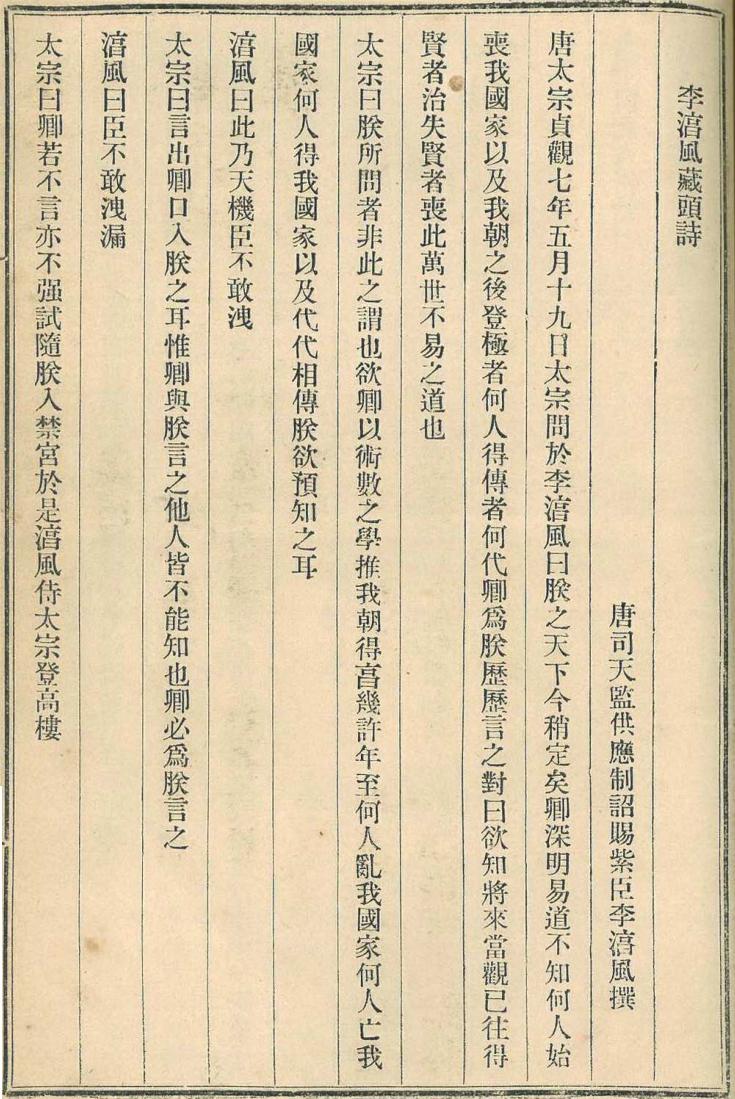 李湻風藏頭詩
唐司天監供應制詔賜紫臣李湻風撰
唐太宗貞觀七年五月十九日太宗問於李湻風曰朕之天下今稍定矣卿深明易道不知何人始
喪我國家以及我朝之後登極者何人得傳者何代卿爲朕歷歷言之對曰欲知將來當觀已往得
賢者治失賢者喪此萬世不易之道也
太宗曰朕所問者非此之謂也欲卿以術數之學推我朝得亯幾許年至何人亂我國家何人亡我
國家何人得我國家以及代代相傳朕欲預知之耳
湻風曰此乃天機臣不敢洩
太宗曰言出卿口入朕之耳惟卿與朕言之他人皆不能知也卿必爲朕言之
湻風曰臣不敢洩漏
太宗曰卿若不言亦不强試隨朕入禁宮於是湻風侍太宗登高樓